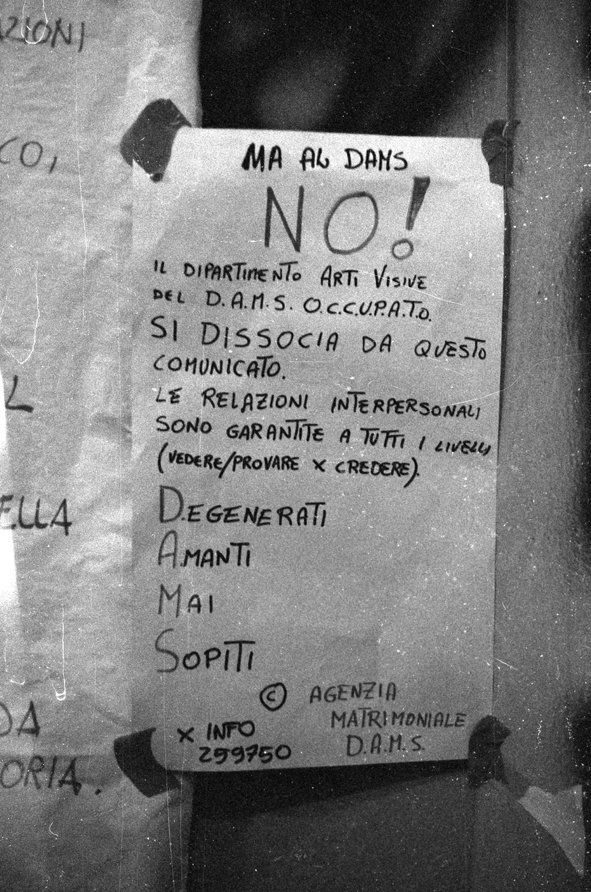 AZIONI
CO,
L
ELLA
DA
ORIA.
MA AL DAMS
NO!
IL DIPARTIMENTO ARTI VISIVE
DEL D.A.M.S. O.C.C.U.P.A.T.O.
SI DISSOCIA DA QUESTO
COMUNICATO.
LE RELAZIONI INTERPERSONALI
SONO GARANTITE A TUTTI I LIVELLI
(VEDERE/PROVARE X CREDERE).
DEGENERATI
AMANTI
MAI
SOPITI
© AGENZIA
MATRIMONIALE
D.A.M.S.
X INFO
259750